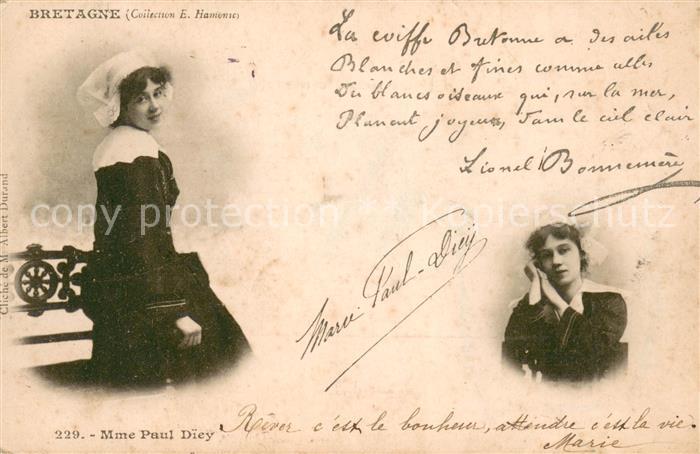 BRETAGNE (Collection E. Hamonic)
La coiffe Bretonne a des ailes
Blanches et fines comme celles
Des blancs oiseaux qui, sur la mer,
Planent joyeux, dans le ciel clair
Lionel Bonnemère
Cliché de M. Albert Durand
Copyright protection ** Kopierschutz
Marie Paul-Diey
229. - Mme Paul Dïey
Rêver c'est le bonheur, attendre c'est la vie.
Marie